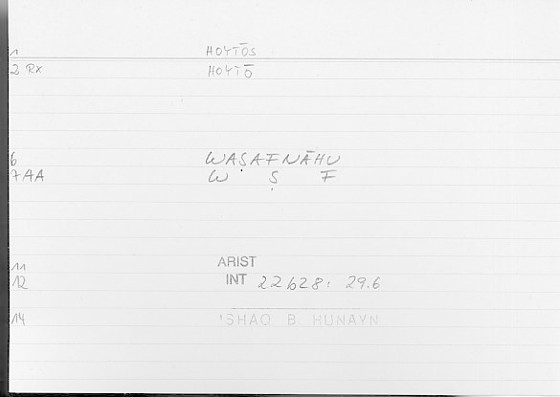 1 HOYTŌS
2 Rx HOYTŌ
6 WAṢAFNĀHU
7 AA W Ṣ F
11 ARIST
12 INT 22b28: 29.6
14 'SHAQ B. HUNAYN